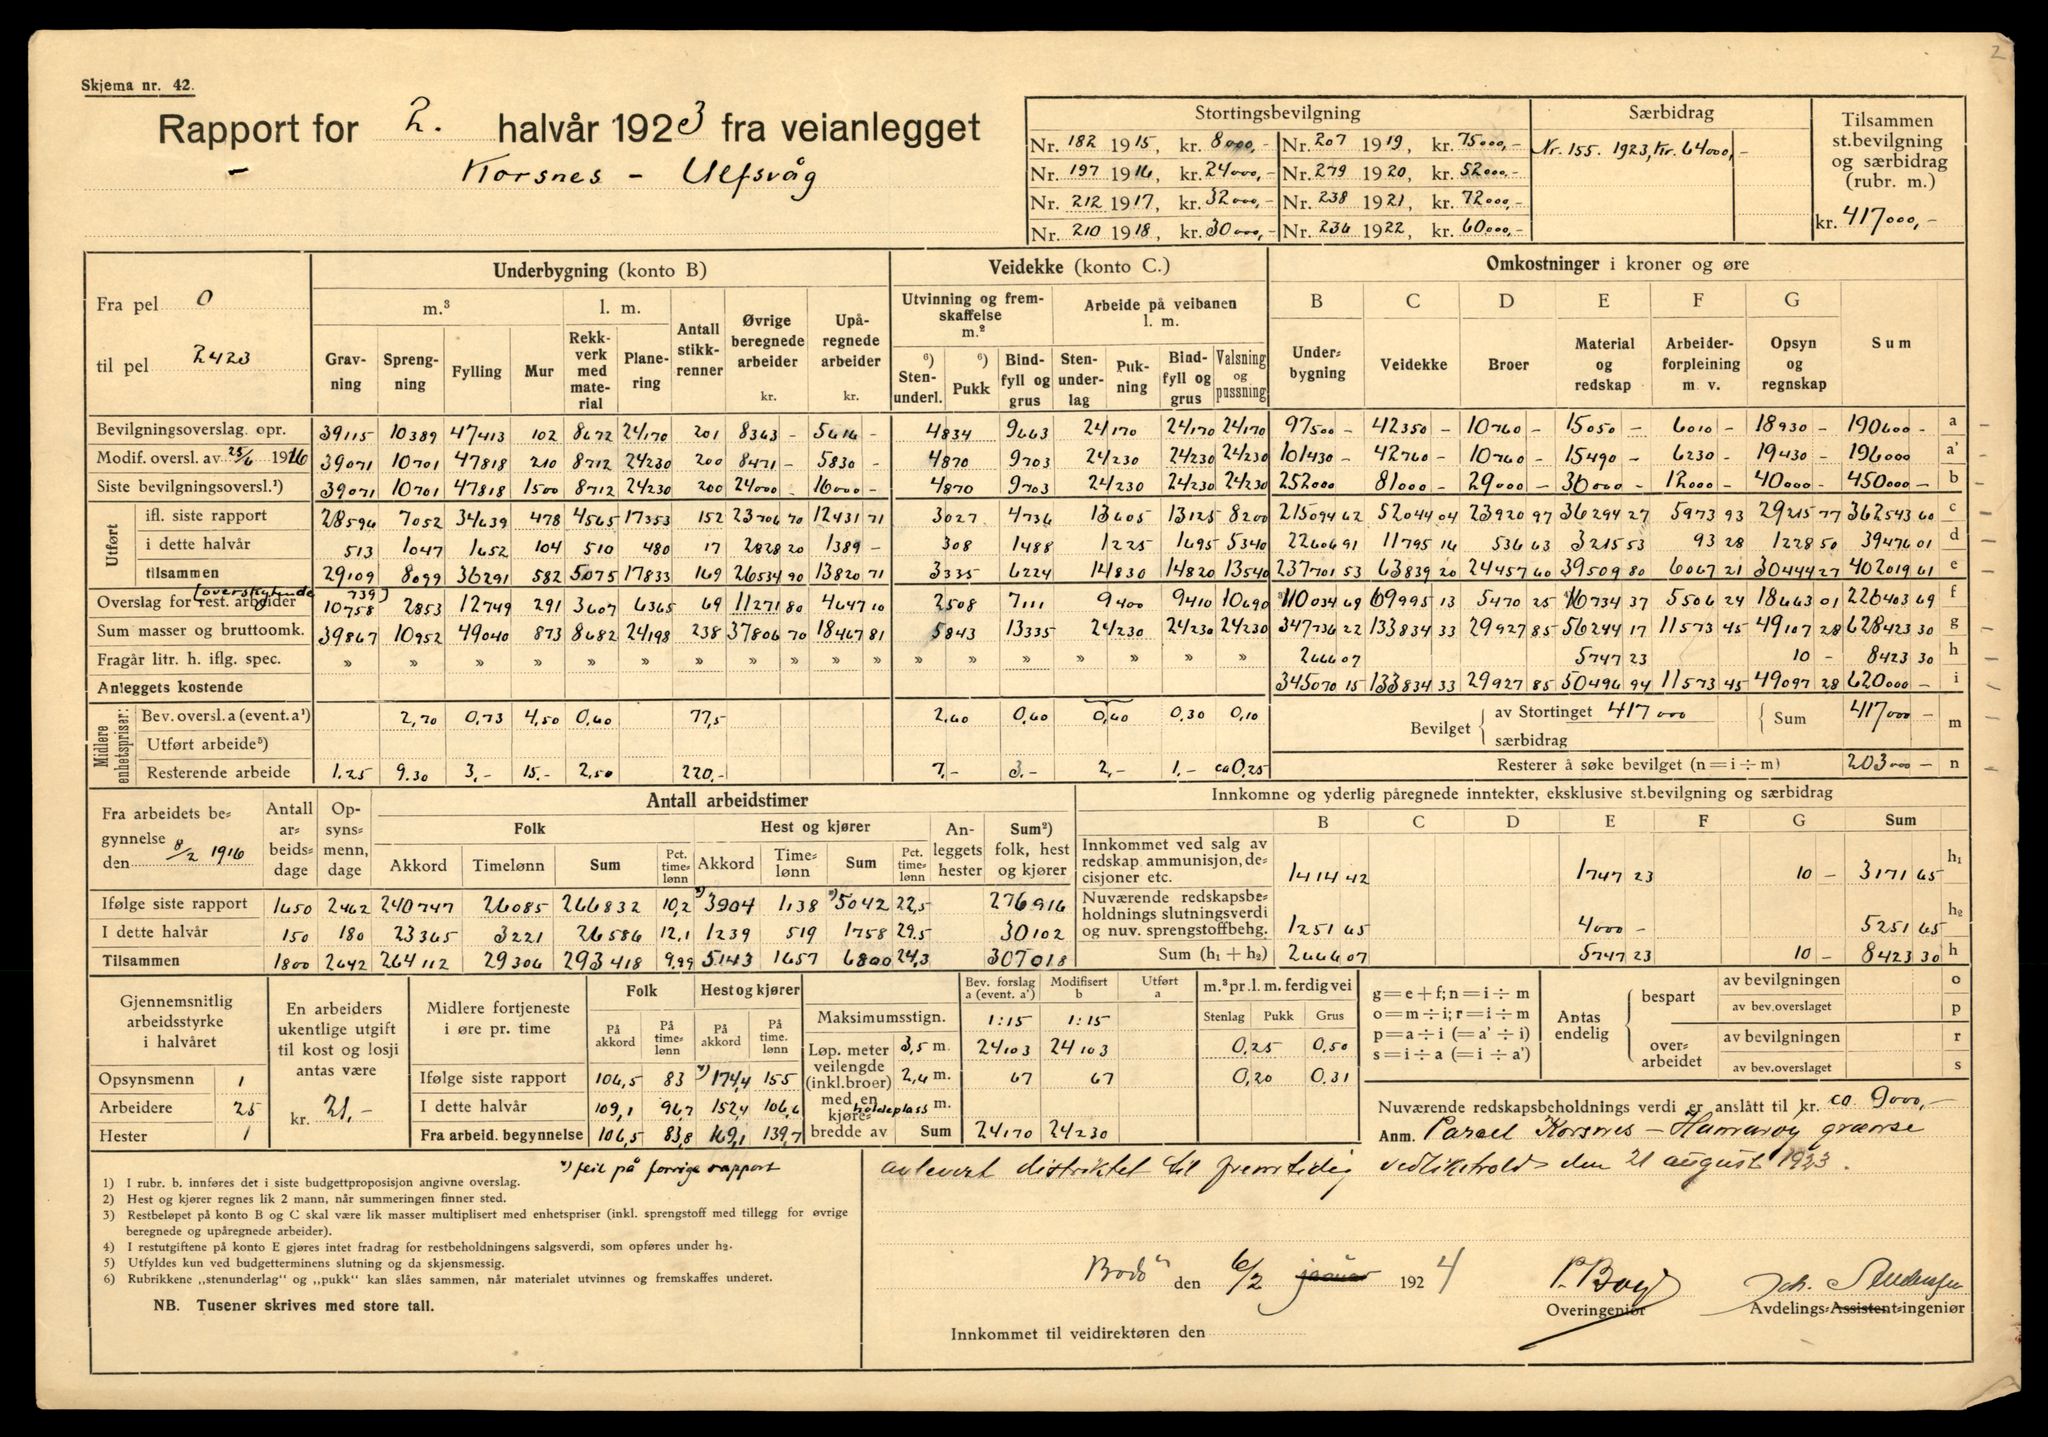 2
Skjema nr. 42.
Rapport for 2. halvår 1923 fra veianlegget
Korsnes – Ulfsvåg
Stortingsbevilgning | Særbidrag | Tilsammen st.bevilgning og særbidrag (rubr. m.)
Nr. 182 1915, kr. 8000,- Nr. 207 1919, kr. 75000,- Nr. 155. 1923, kr. 64000,-
Nr. 197 1916, kr. 24000,- Nr. 279 1920, kr. 52000,-
Nr. 212 1917, kr. 32000,- Nr. 238 1921, kr. 72000,-
Nr. 210 1918, kr. 30000,- Nr. 236 1922, kr. 60000,- kr. 417000,-
Fra pel 0
til pel 2423
Underbygning (konto B) | Veidekke (konto C.) | Omkostninger i kroner og øre
m.³ | l. m. | Antall stikkrenner | Øvrige beregnede arbeider kr. | Upåregnede arbeider kr. | Utvinning og fremskaffelse m.³ | Arbeide på veibanen l. m. | B | C | D | E | F | G
Gravning | Sprengning | Fylling | Mur | Rekkverk med materiale | Planering | 6) Stenunderl. | 6) Pukk | Bindfyll og grus | Stenunderlag | Pukning | Bindfyll og grus | Valsning og pussning | Underbygning | Veidekke | Broer | Material og redskap | Arbeiderforpleining m. v. | Opsyn og regnskap | Sum
Bevilgningsoverslag. opr. 39115 10389 47413 102 8672 24170 201 8363 - 5616 - 4834 9663 24170 24170 24170 97500 - 42350 - 10760 - 15050 - 6010 - 18930 - 190600 - a
Modif. oversl. av 25/6 1916 39071 10701 47818 210 8712 24230 200 8471 - 5830 - 4870 9703 24230 24230 24230 101430 - 42760 - 10760 - 15490 - 6230 - 19430 - 196000 - a'
Siste bevilgningsoversl.¹) 39071 10701 47818 1500 8712 24230 200 24000 - 16000 - 4870 9703 24230 24230 24230 252000 81000 - 29000 - 36000 - 12000 - 40000 - 450000 - b
Utført
ifl. siste rapport 28596 7052 34639 478 4565 17353 152 23706 70 12431 71 3027 4736 13605 13125 8200 215094 62 52044 04 23920 97 36294 27 5973 93 29215 77 362543 60 c
i dette halvår 513 1047 1652 104 510 480 17 2828 20 1389 - 308 1488 1225 1695 5340 22606 91 11795 16 536 63 3215 53 93 28 1228 50 39476 01 d
tilsammen 29109 8099 36291 582 5075 17833 169 26534 90 13820 71 3335 6224 14830 14820 13540 237701 53 63839 20 24457 60 39509 80 6067 21 30444 27 402019 61 e
(overskytende 739)
Overslag for rest. arbeider 10758 2853 12749 291 3607 6365 69 11271 80 4647 10 2508 7111 9400 9410 10690 ³)110034 69 69995 13 5470 25 16734 37 5506 24 18663 01 226403 69 f
Sum masser og bruttoomk. 39867 10952 49040 873 8682 24198 238 37806 70 18467 81 5843 13335 24230 24230 24230 347736 22 133834 33 29927 85 56244 17 11573 45 49107 28 628423 30 g
Fragår litr. h. iflg. spec. » » » » » » » » » » » » » » » » 2666 07 5747 23 10 - 8423 30 h
Anleggets kostende 345070 15 133834 33 29927 85 50496 94 11573 45 49097 28 620000 - i
Midlere enhetspriser:
Bev. oversl. a (event. a¹) 2,70 0,73 4,50 0,60 77,5 2,60 0,60 0,60 0,30 0,10
Utført arbeide⁵)
Resterende arbeide 1.25 9.30 3,- 15.- 2,50 220,- 7,- 3.- 2,- 1.- ca 0,25
Bevilget av Stortinget 417000 særbidrag Sum 417000 - m
Resterer å søke bevilget (n=i÷m) 203000 - n
Fra arbeidets begynnelse den 8/2 1916
Antall arbeidsdage | Opsynsmenn, dage | Antall arbeidstimer
Folk | Hest og kjører | Anleggets hester | Sum²) folk, hest og kjører
Akkord | Timelønn | Sum | Pct. timelønn | Akkord | Timelønn | Sum | Pct. timelønn
Ifølge siste rapport 1650 2462 240747 26085 266832 10,2 *)3904 1138 *)5042 22,5 276916
I dette halvår 150 180 23365 3221 26586 12,1 1239 519 1758 29.5 30102
Tilsammen 1800 2642 264112 29306 293418 9.99 5143 1657 6800 24,3 307018
Innkomne og yderlig påregnede inntekter, eksklusive st.bevilgning og særbidrag
B | C | D | E | F | G | Sum
Innkommet ved salg av redskap, ammunisjon, decisjoner etc. 1414 42 1747 23 10 - 3171 65 h₁
Nuværende redskapsbeholdnings slutningsverdi og nuv. sprengstoffbehg. 1251 65 4000 - 5251 65 h₂
Sum (h₁ + h₂) 2666 07 5747 23 10 - 8423 30 h
Gjennemsnitlig arbeidsstyrke i halvåret
Opsynsmenn 1
Arbeidere 25
Hester 1
En arbeiders ukentlige utgift til kost og losji antas være kr. 21,-
Midlere fortjeneste i øre pr. time
Folk | Hest og kjører
På akkord | På timelønn | På akkord | På time. lønn
Ifølge siste rapport 106,5 83 *)174,4 155
I dette halvår 109,1 96,7 152,4 106,6
Fra arbeid. begynnelse 106,5 83,8 169,1 139,7
Bev. forslag a (event. a') | Modifisert b | Utført a
Maksimumsstign. 1:15 1:15
Løp. meter veilengde (inkl. broer) med en kjørebredde av
3,5 m. 24103 24103
2,6 m. 67 67
holdeplass m.
Sum 24170 24230
m.³ pr. l. m. ferdig vei
Stenlag | Pukk | Grus
0,25 0,50
0,20 0,31
g=e+f; n=i÷m
o=m÷i; r=i÷m
p=a÷i (=a'÷i)
s=i÷a (=i÷a')
Antas endelig
bespart av bevilgningen o
av bev. overslaget p
overarbeidet av bevilgningen r
av bev. overslaget s
Nuværende redskapsbeholdnings verdi er anslått til kr. ca 9000,-
Anm. Parcel Korsnes – Hamarøy grænse
avlevert distriktet til fremtidig vedlikehold den 21 august 1923.
*) feil på forrige rapport
1) I rubr. b. innføres det i siste budgettproposisjon angivne overslag.
2) Hest og kjører regnes lik 2 mann, når summeringen finner sted.
3) Restbeløpet på konto B og C skal være lik masser multiplisert med enhetspriser (inkl. sprengstoff med tillegg for øvrige
beregnede og upåregnede arbeider).
4) I restutgiftene på konto E gjøres intet fradrag for restbeholdningens salgsverdi, som opføres under h₂.
5) Utfyldes kun ved budgetterminens slutning og da skjønsmessig.
6) Rubrikkene „stenunderlag" og „pukk" kan slåes sammen, når materialet utvinnes og fremskaffes underet.
NB. Tusener skrives med store tall.
Bodö den 6/2 januar 1924
Overingeniør
Avdelings-Assistent-ingeniør
Innkommet til veidirektøren den